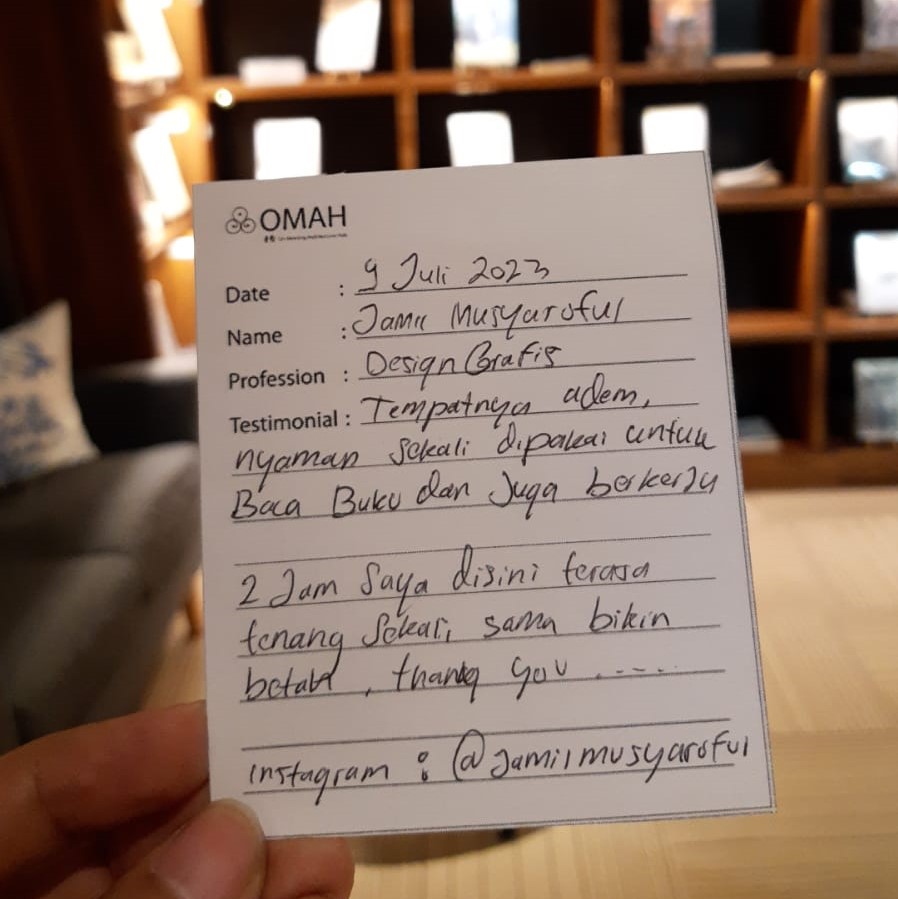 OMAH
Date : 9 Juli 2023
Name : Jamil Musyaroful
Profession : Design Grafis
Testimonial : Tempatnya adem,
nyaman sekali dipakai untuk
Baca Buku dan Juga berkerja
2 Jam Saya disini terasa
tenang Sekali, sama bikin
betah, thanq you ......
Instagram : @Jamilmusyaroful